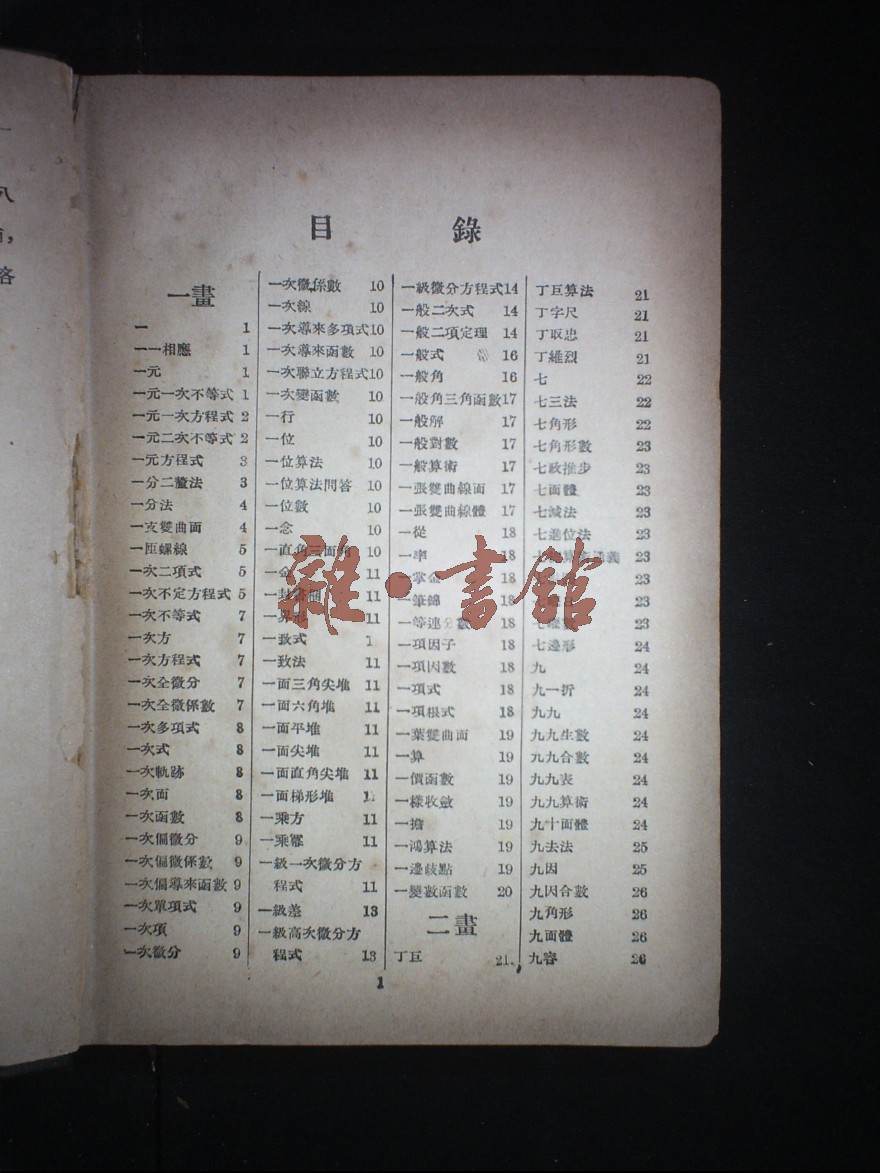 目 錄
一畫
一 1
一一相應 1
一元 1
一元一次不等式 1
一元一次方程式 2
一元二次不等式 2
一元方程式 3
一分二釐法 3
一分法 4
一支雙曲面 4
一匝螺線 5
一次二項式 5
一次不定方程式 5
一次不等式 7
一次方 7
一次方程式 7
一次全微分 7
一次全微係數 7
一次多項式 8
一次式 8
一次軌跡 8
一次面 8
一次函數 8
一次偏微分 9
一次偏微係數 9
一次偏導來函數 9
一次單項式 9
一次項 9
一次微分 9
一次微係數 10
一次線 10
一次導來多項式 10
一次導來函數 10
一次聯立方程式 10
一次變函數 10
一行 10
一位 10
一位算法 10
一位算法問答 10
一位數 10
一念 10
一直角三面角 10
一金 11
11
一界形 11
一致式
一致法 11
一面三角尖堆 11
一面六角堆 11
一面平堆 11
一面尖堆 11
一面直角尖堆 11
一面梯形堆
一乘方 11
一乘冪 11
一級一次微分方
程式 11
一級差 13
一級高次微分方
程式 13
一級微分方程式 14
一般二次式 14
一般二項定理 14
一般式 16
一般角 16
一般角三角函數 17
一般解 17
一般對數 17
一般算術 17
一張雙曲線面 17
一張雙曲線體 17
一從 18
一率 18
一掌金 18
一筆錦 18
一等連分數 18
一項因子 18
一項因數 18
一項式 18
一項根式 18
一葉雙曲面 19
一算 19
一價函數 19
一樣收斂 19
一擔 19
一鴻算法 19
一邊歧點 19
一變數函數 20
二畫
丁巨 21
丁巨算法 21
丁字尺 21
丁取忠 21
丁維烈 21
七 22
七三法 22
七角形 22
七角形數 23
七政推步 23
七面體 23
七減法 23
七進位法 23
23
23
23
七邊形 24
九 24
九一折 24
九九 24
九九生數 24
九九合數 24
九九表 24
九九算術 24
九十面體 24
九去法 25
九因 25
九因合數 26
九角形 26
九面體 26
九容 26
1
雜·書館
八